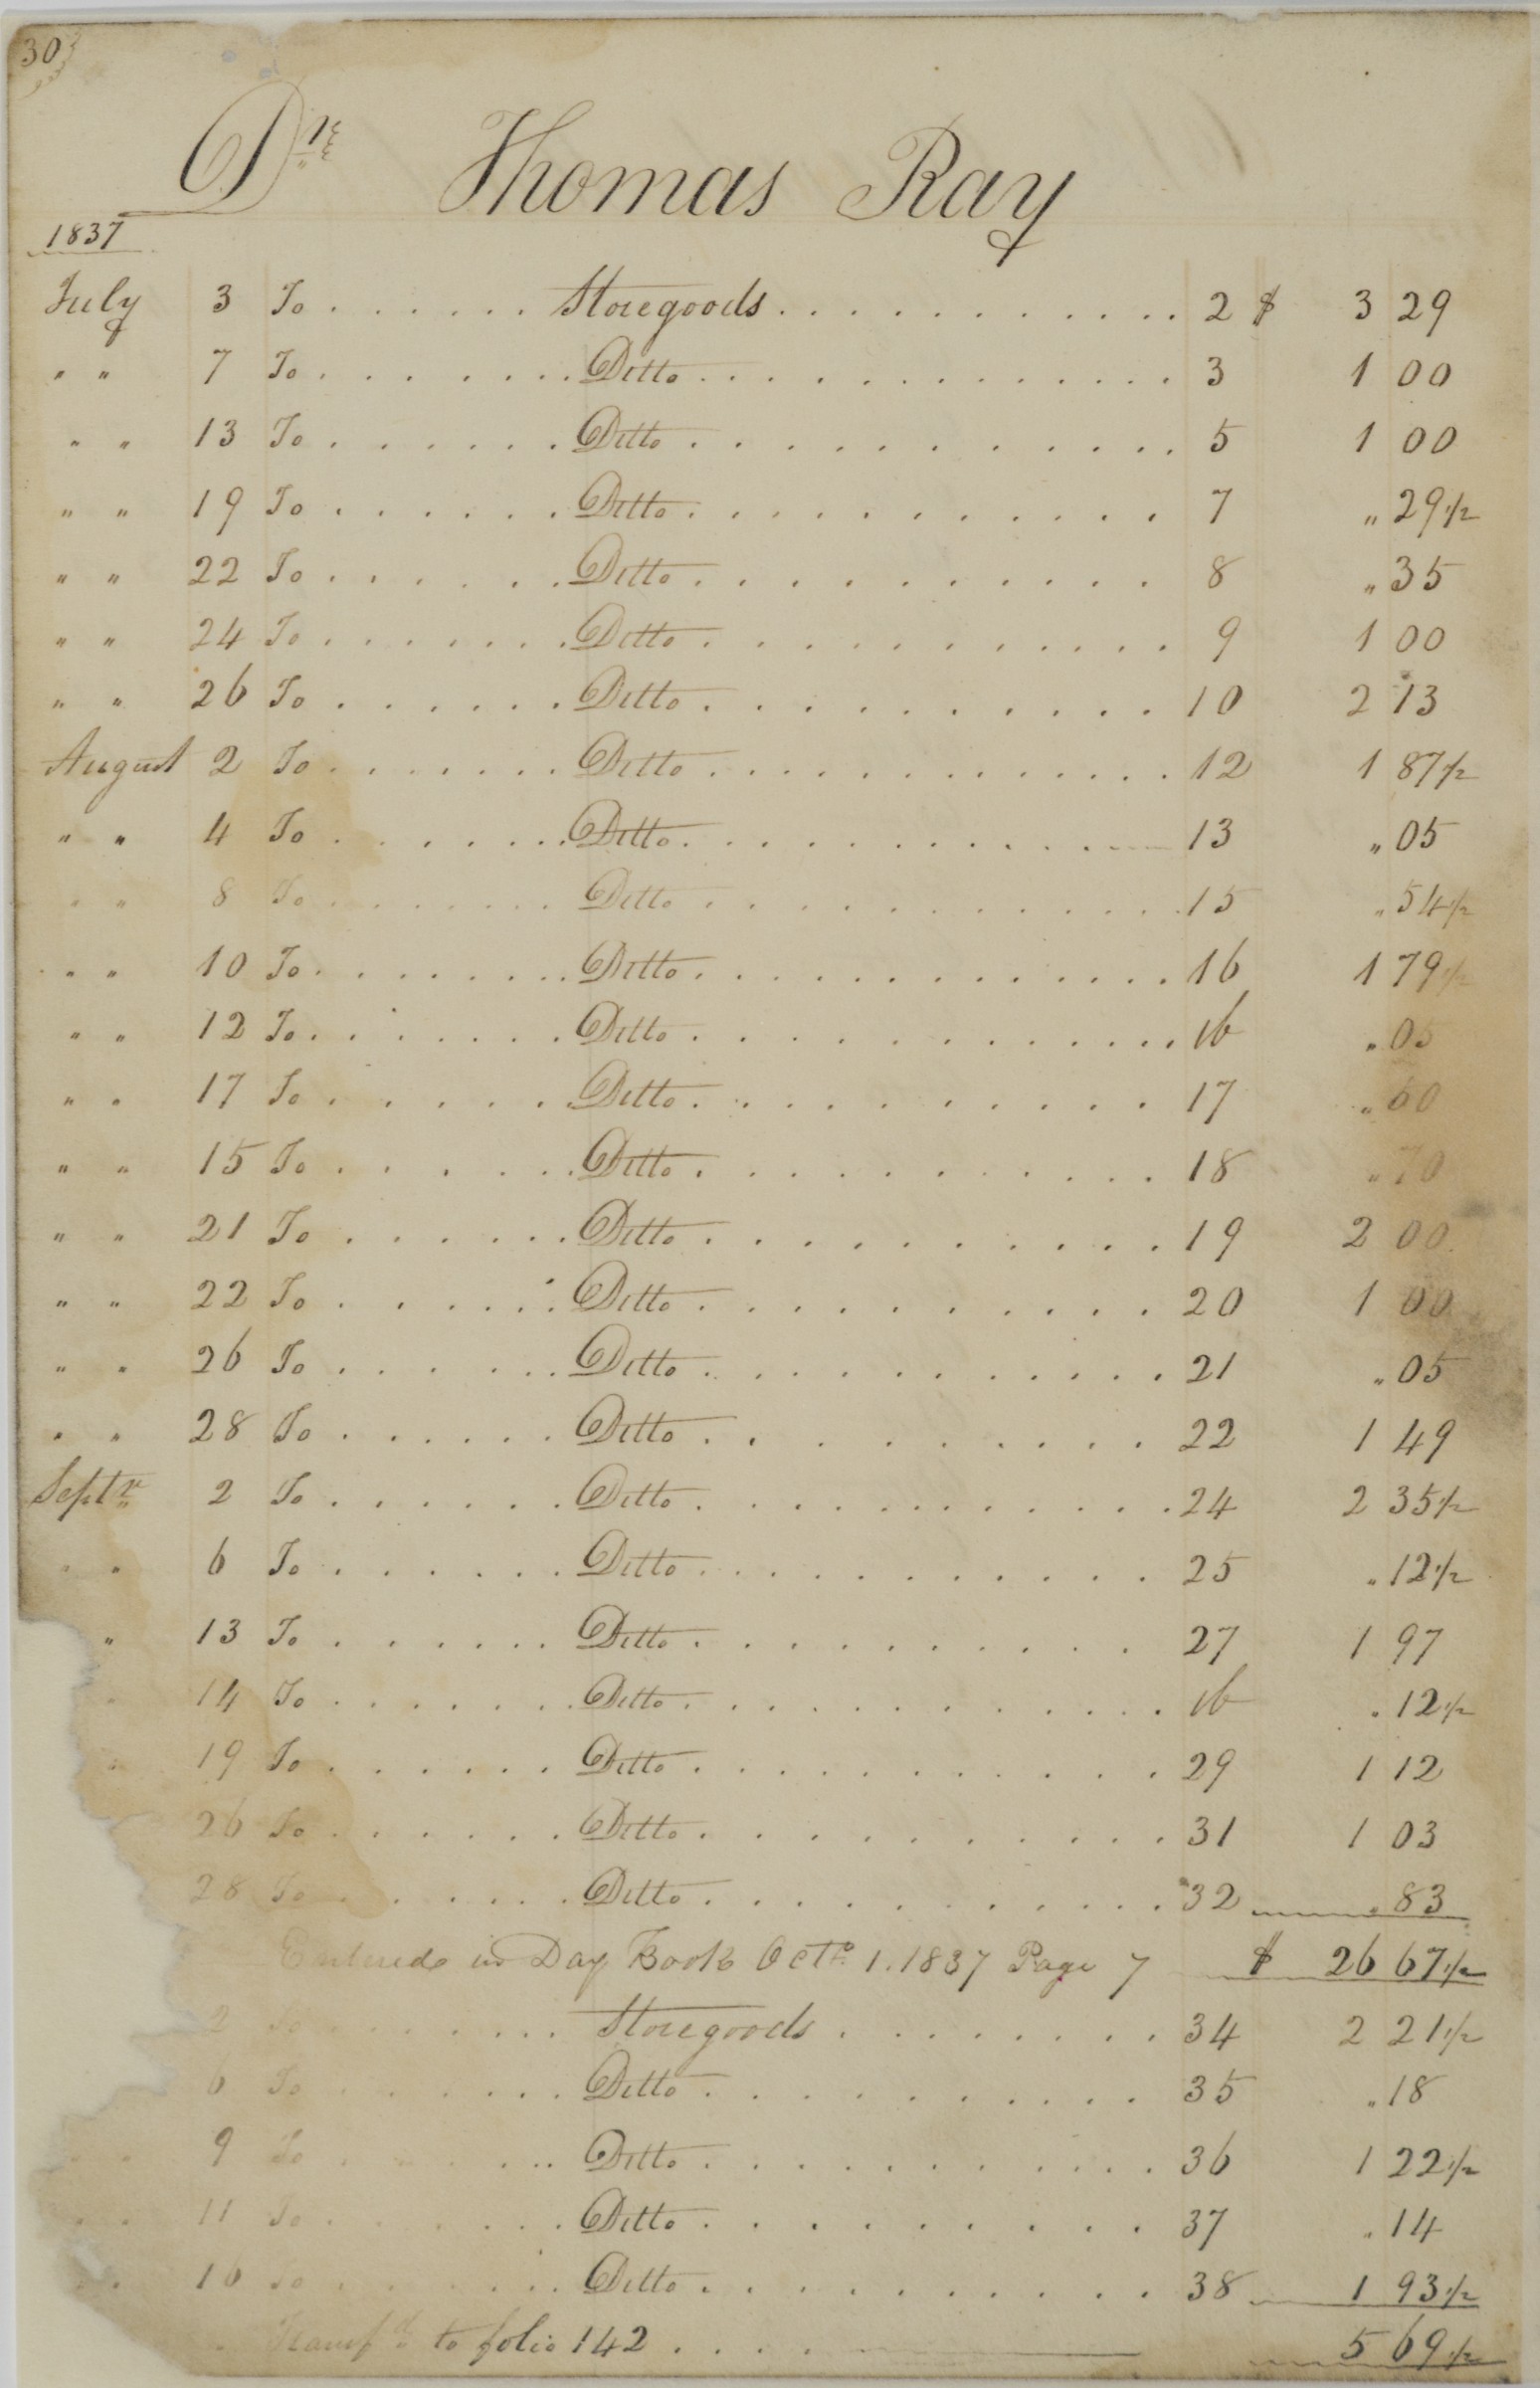 30
Dr Thomas Ray
1837
July 3 To . . . . . . Storegoods . . . . . . . . . . . . 2 $ 3 29
" " 7 To . . . . . . . Ditto . . . . . . . . . . . . . 3 1 00
" " 13 To . . . . . . Ditto . . . . . . . . . . . 5 1 00
" " 19 To . . . . . . Ditto . . . . . . . . . . . 7 " 29 1/2
" " 22 To . . . . . . Ditto . . . . . . . . . . 8 " 35
" " 24 To . . . . . . . Ditto . . . . . . . . . . . 9 1 00
" " 26 To . . . . . . Ditto . . . . . . . . . . 10 2 13
August 2 To . . . . . . . Ditto . . . . . . . . . . . . 12 1 87 1/2
" " 4 To . . . . . . Ditto . . . . . . . . . . . 13 " 05
" " 8 To . . . . . . . Ditto . . . . . . . . . . . 15 " 54 1/2
" " 10 To . . . . . . . Ditto . . . . . . . . . . . . 16 1 79 1/2
" " 12 To . . . . . . . Ditto . . . . . . . . . . . . ib " 05
" " 17 To . . . . . . Ditto . . . . . . . . . . 17 " 60
" " 15 To . . . . . . Ditto . . . . . . . . . . 18 " 70
" " 21 To . . . . . . Ditto . . . . . . . . . . 19 2 00
" " 22 To . . . . . . Ditto . . . . . . . . . . 20 1 00
" " 26 To . . . . . . Ditto . . . . . . . . . . 21 " 05
" " 28 To . . . . . . Ditto . . . . . . . . . . 22 1 49
Septr 2 To . . . . . . Ditto . . . . . . . . . . . 24 2 35 1/2
" " 6 To . . . . . . Ditto . . . . . . . . . . 25 " 12 1/2
" 13 To . . . . . . Ditto . . . . . . . . . . 27 1 97
" 14 To . . . . . . . Ditto . . . . . . . . . . . ib " 12 1/2
" 19 To . . . . . . Ditto . . . . . . . . . . . 29 1 12
26 To . . . . . . Ditto . . . . . . . . . . . 31 1 03
28 To . . . . . . Ditto . . . . . . . . . . . 32 " 83
Entered in Day Book Octr 1. 1837 Page 7 $ 26 67 1/2
2 To . . . . . . Storegoods . . . . . . . . 34 2 21 1/2
6 To . . . . . . Ditto . . . . . . . . . . 35 " 18
" " 9 To . . . . . . Ditto . . . . . . . . . . 36 1 22 1/2
" " 11 To . . . . . . Ditto . . . . . . . . . . 37 " 14
" " 16 To . . . . . . Ditto . . . . . . . . . . 38 1 93 1/2
to folio 142 . . . . 5 69 1/2